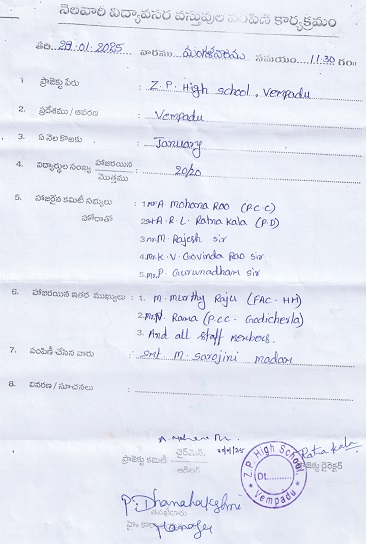 నెలవారీ విద్యావసర వస్తువుల పంపిణీ కార్యక్రమం
తేది: 28.01.2025 వారము మంగళవారము సమయం 11:30 గం॥
1 ప్రాజెక్టు పేరు : Z.P. High school, Vempadu
2. ప్రదేశము / ఆవరణ : Vempadu
3. ఏ నెల కొఱకు : January
4. విద్యార్థుల సంఖ్య హాజరయిన / మొత్తము : 20/20
5. హాజరైన కమిటీ సభ్యులు : 1. Mr A Mohana Rao (P.C.C)
హోదాతో 2. A.R.L. Ratna Kala (P.D)
3. Mr. M. Rajesh sir
4. Mr. K.V. Govinda Rao sir
5. Mr. P. Gurunadham sir
6. హాజరయిన ఇతర ముఖ్యులు : 1. M. Murthy Raju (FAC-HM)
2. Mr. N. Rama (P.CC - Godicherla)
3. And all staff members.
7. పంపిణీ చేసిన వారు : Smt M. Sarojini madam
8. వివరణ / సూచనలు :
ప్రాజెక్టు కమిటీ ఛైర్మెన్
Ratna Kala
ప్రాజెక్టు డైరెక్టర్
Z.P. High School
Dt.
Vempadu
P. Dhanalakshmi
Manager